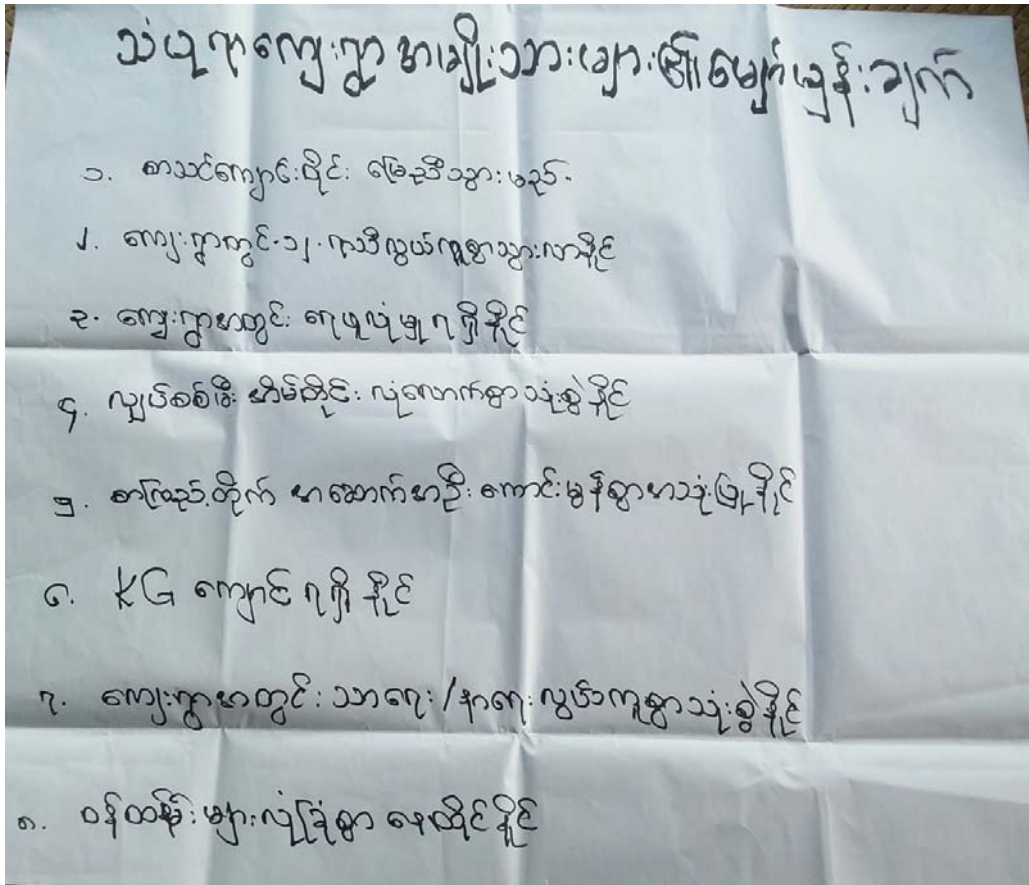 သံယုဂ္ကကျေးရွာ အမျိုးသားများ၏ မျှော်မှန်းချက်
၁. စာသင်ကျောင်းဝိုင်း မြေညီသွားမည်.
၂. ကျေးရွာတွင်း ၁၂ ရာသီလွယ်ကူစွာသွားလာနိုင်
၃. ကျေးရွာအတွင်း ရေဖူလုံမှု ရရှိနိုင်
၄. လျှပ်စစ်မီး အိမ်တိုင်း လုံလောက်စွာ သုံးစွဲနိုင်
၅. စာကြည့်တိုက် အဆောက်အဦး ကောင်းမွန်စွာအသုံးပြုနိုင်
၆. KG ကျောင်း ရရှိနိုင်
၇. ကျေးရွာအတွင်း သာရေး/နာရေး လွယ်ကူစွာသုံးစွဲနိုင်
၈. ဝန်ထမ်းများလုံခြုံစွာ နေထိုင်နိုင်